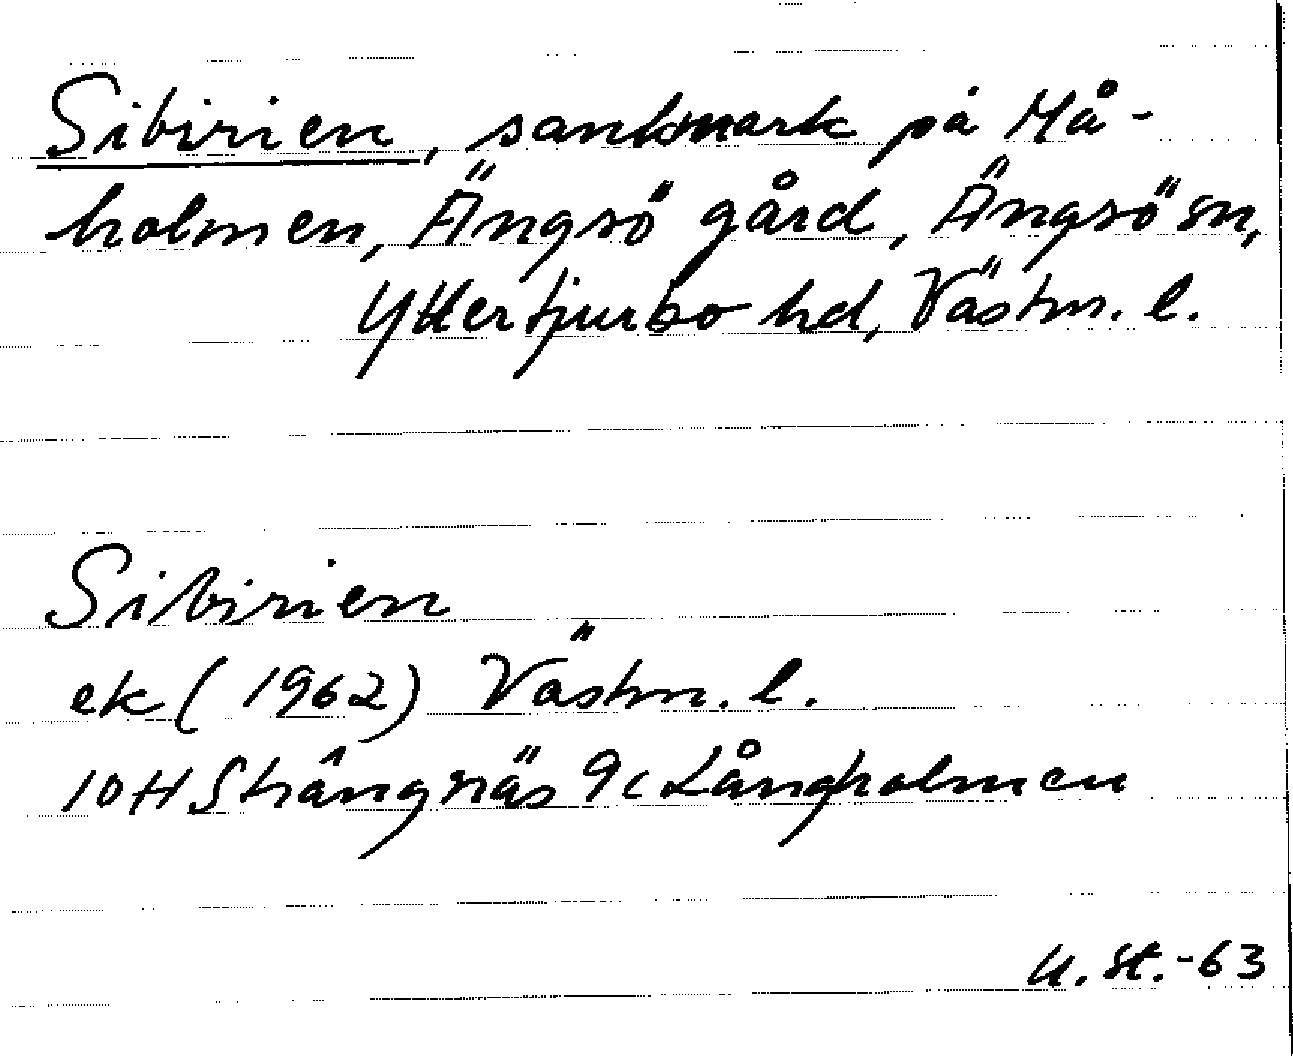 Sibirien, sankmark på Må-
holmen, Ängsö gård, Ängsö sn,
Yttertjurbo hd, Västm. l.
Sibirien
ek (1962) Västm. l.
10H Strängnäs 9c Långholmen
U. St. -63